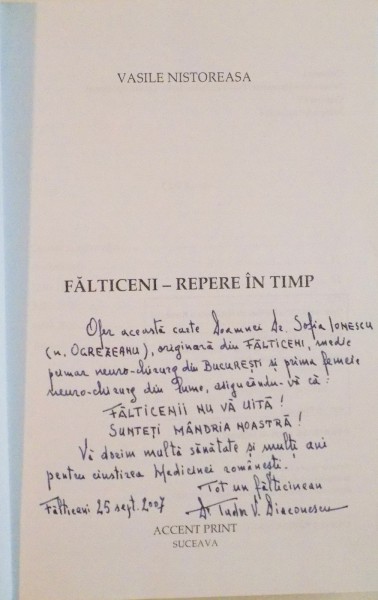 VASILE NISTOREASA
FĂLTICENI – REPERE ÎN TIMP
Ofer această carte Doamnei Dr. Sofia IONESCU
(n. OGREZEANU), originară din FĂLTICENI, medic
primar neuro-chirurg din BUCUREȘTI și prima femeie
neuro-chirurg din lume, asigurându-vă că:
FĂLTICENII NU VĂ UITĂ!
SUNTEȚI MÂNDRIA NOASTRĂ!
Vă dorim multă sănătate și mulți ani
pentru cinstirea Medicinei românești.
Tot un fălticinean
Fălticeni 25 sept. 2007 Dr Tudor V. Diaconescu
ACCENT PRINT
SUCEAVA